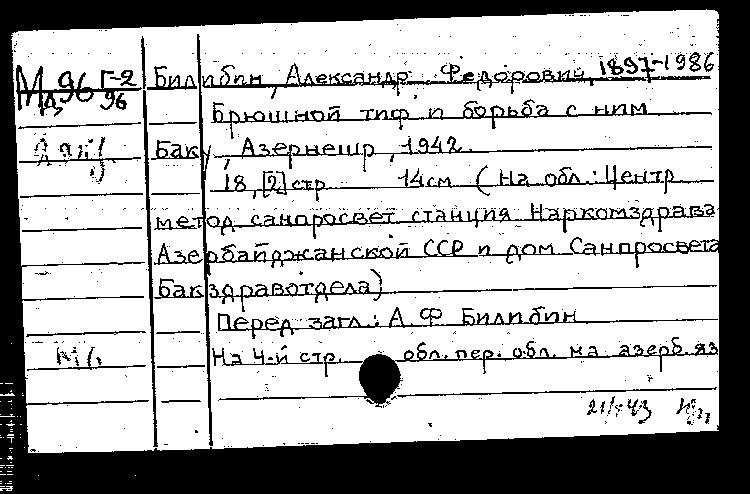 М Д 96 Г-2/96
Билибин, Александр Федорович, 1897-1986
Брюшной тиф и борьба с ним
Баку, Азернешр, 1942.
18, [2] стр 14см (На обл.: Центр
метод санпросвет станция Наркомздрава
Азербайджанской ССР и дом Санпросвета
Бакздравотдела)
Перед загл.: А.Ф Билибин
На 4-й стр. обл. пер. обл. на азерб. яз